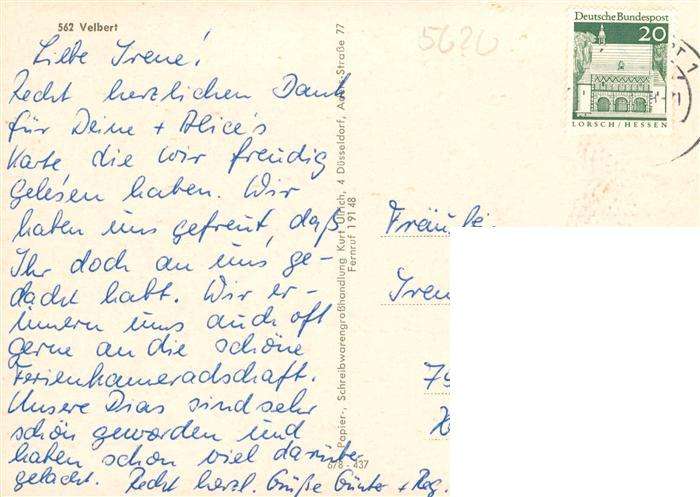 562 Velbert
Liebe Irene!
Recht herzlichen Dank
für Deine + Alice's
Karte die wir freudig
gelesen haben. Wir
haben uns gefreut, daß
Ihr doch an uns ge-
dacht habt. Wir er-
innern uns auch oft
gerne an die schöne
Ferienkameradschaft.
Unsere Dias sind sehr
schön geworden und
haben schon viel darüber
gelacht. Recht herzl. Grüße Günter + Reg.
Papier-, Schreibwarengroßhandlung Kurt Ullrich, 4 Düsseldorf, Straße 77
Fernruf 1 91 48
678 - 437
5620
Deutsche Bundespost
20
LORSCH/HESSEN
Fräulei
Iren
79